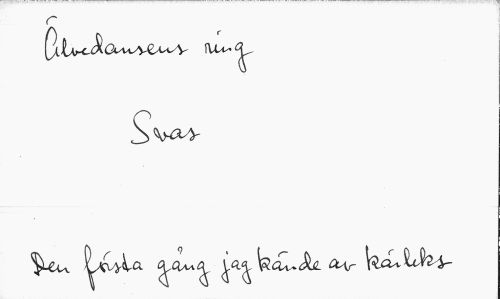 Älvedansens ring
Svas
Den första gång jag kände av kärleks